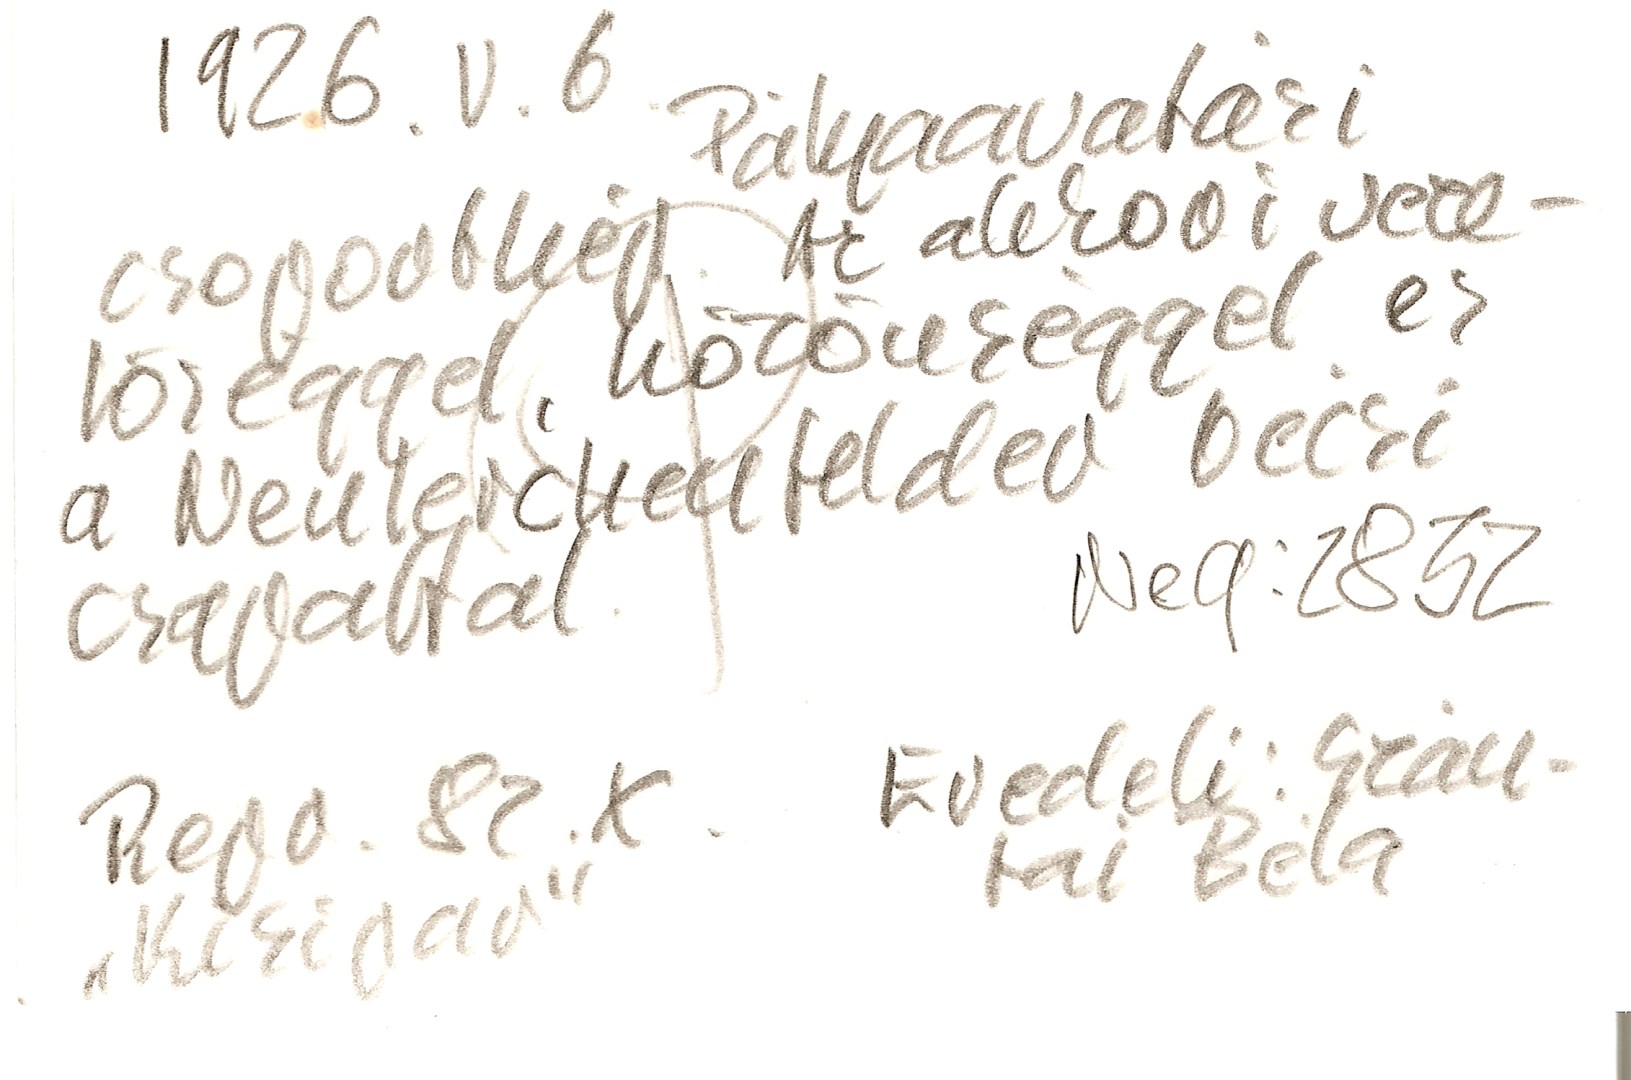 1926. V. 6. Pályaavatási
csoportkép. Az alkrooi veze-
tőséggel, közönséggel és
a Neulerchenfelder bécsi
csapattal.
Neg: 2852
Repr. Sz. K.
"Kisipar"
Eredeti: Szán-
tai Béla